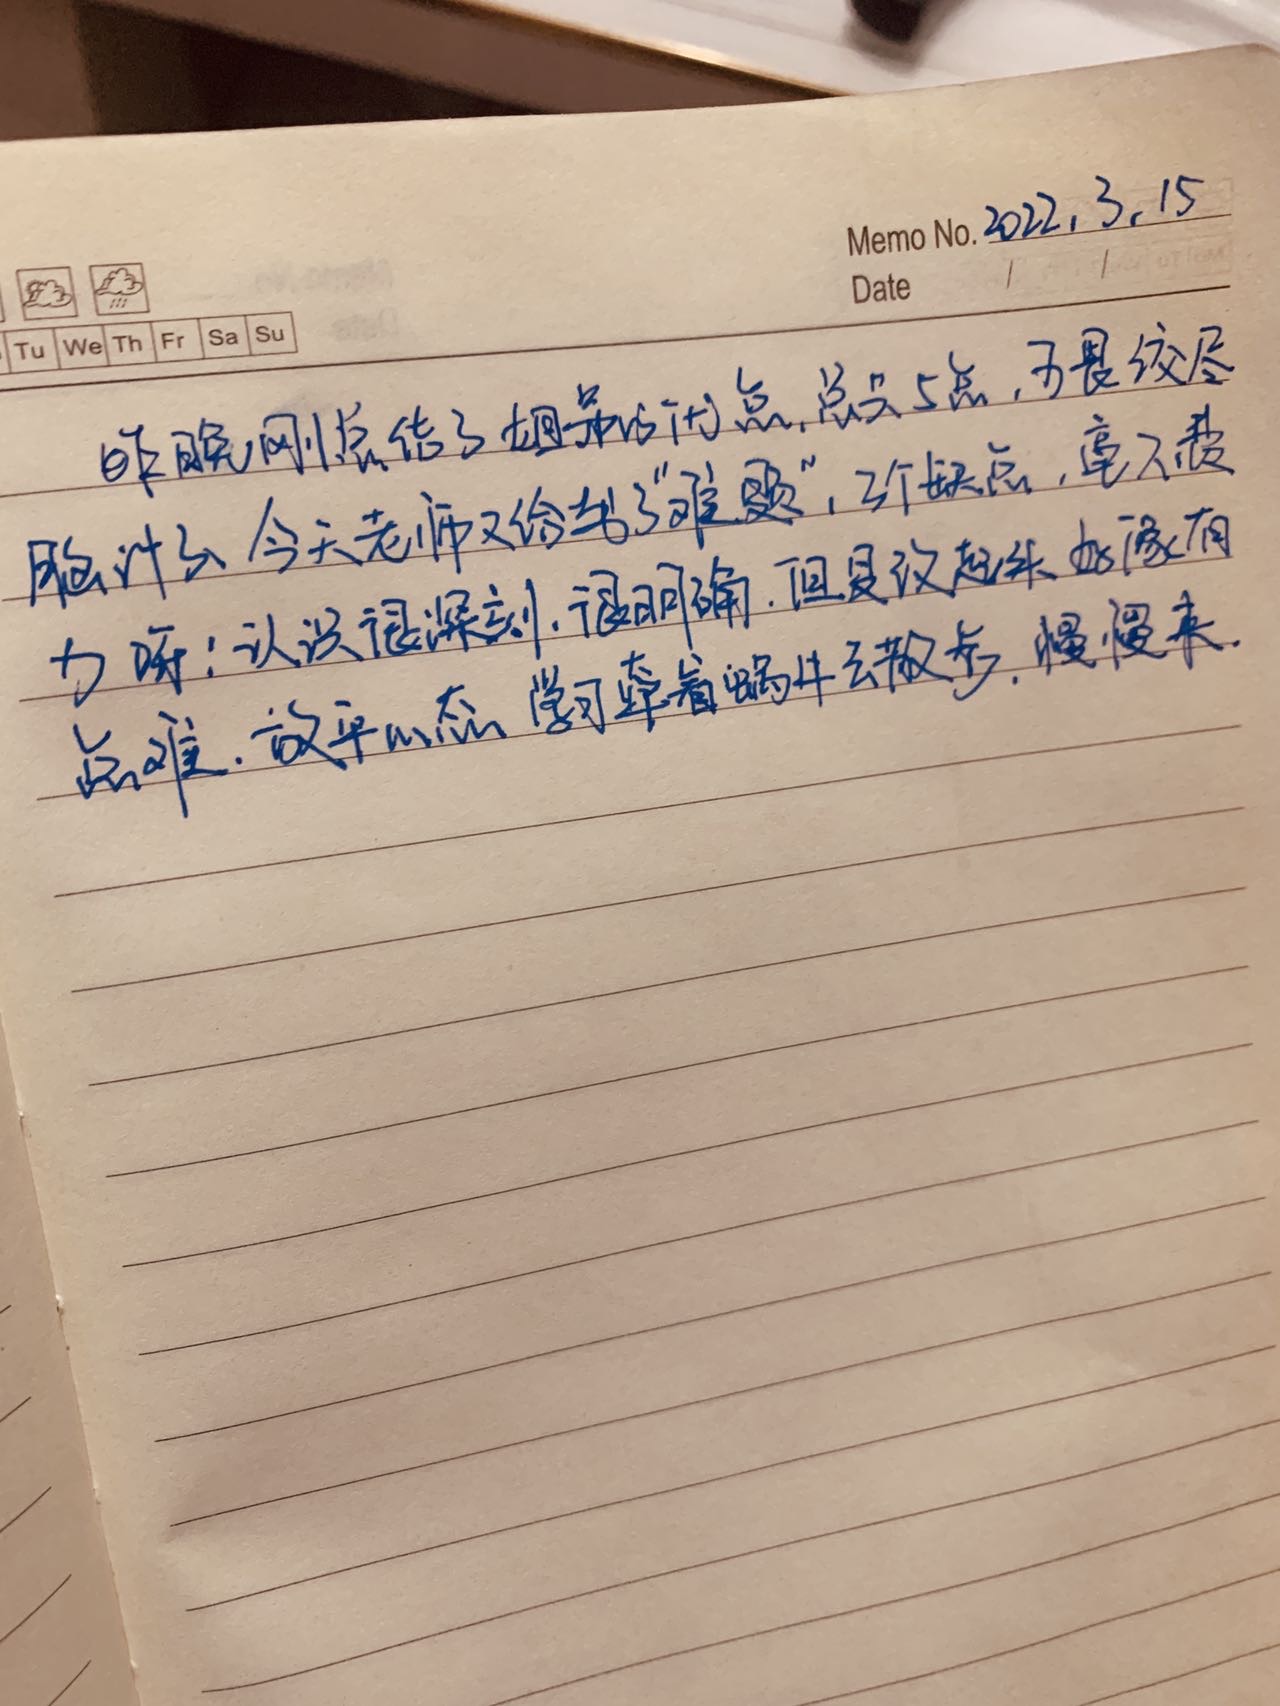 Memo No. 2022.3.15
Date / /
Tu We Th Fr Sa Su
昨晚刚总结了姐弟的闪点,总共5点,可是绞尽
脑汁了,今天老师又给出了“难题”,2个缺点,毫不费
力呀!认识很深刻.很明确.但是改起来好像有
点难.放平心态 学习牵着蜗牛去散步.慢慢来.